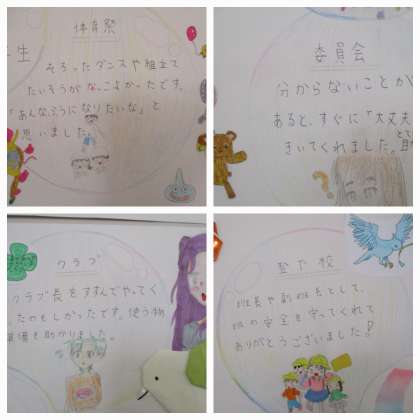 生
体育祭
そろったダンスや組立て
たいそうがかっこよかったです。
「あんなふうになりたいな」と
思いました。
委員会
分からないことが
あると、すぐに「大丈夫
きいてくれました。助
クラブ
クラブ長をすすんでやってく
たのもしかったです。使う物
準備を助かりました。
登下校
班長や副班長として、
班の安全を守ってくれて
ありがとうございました!